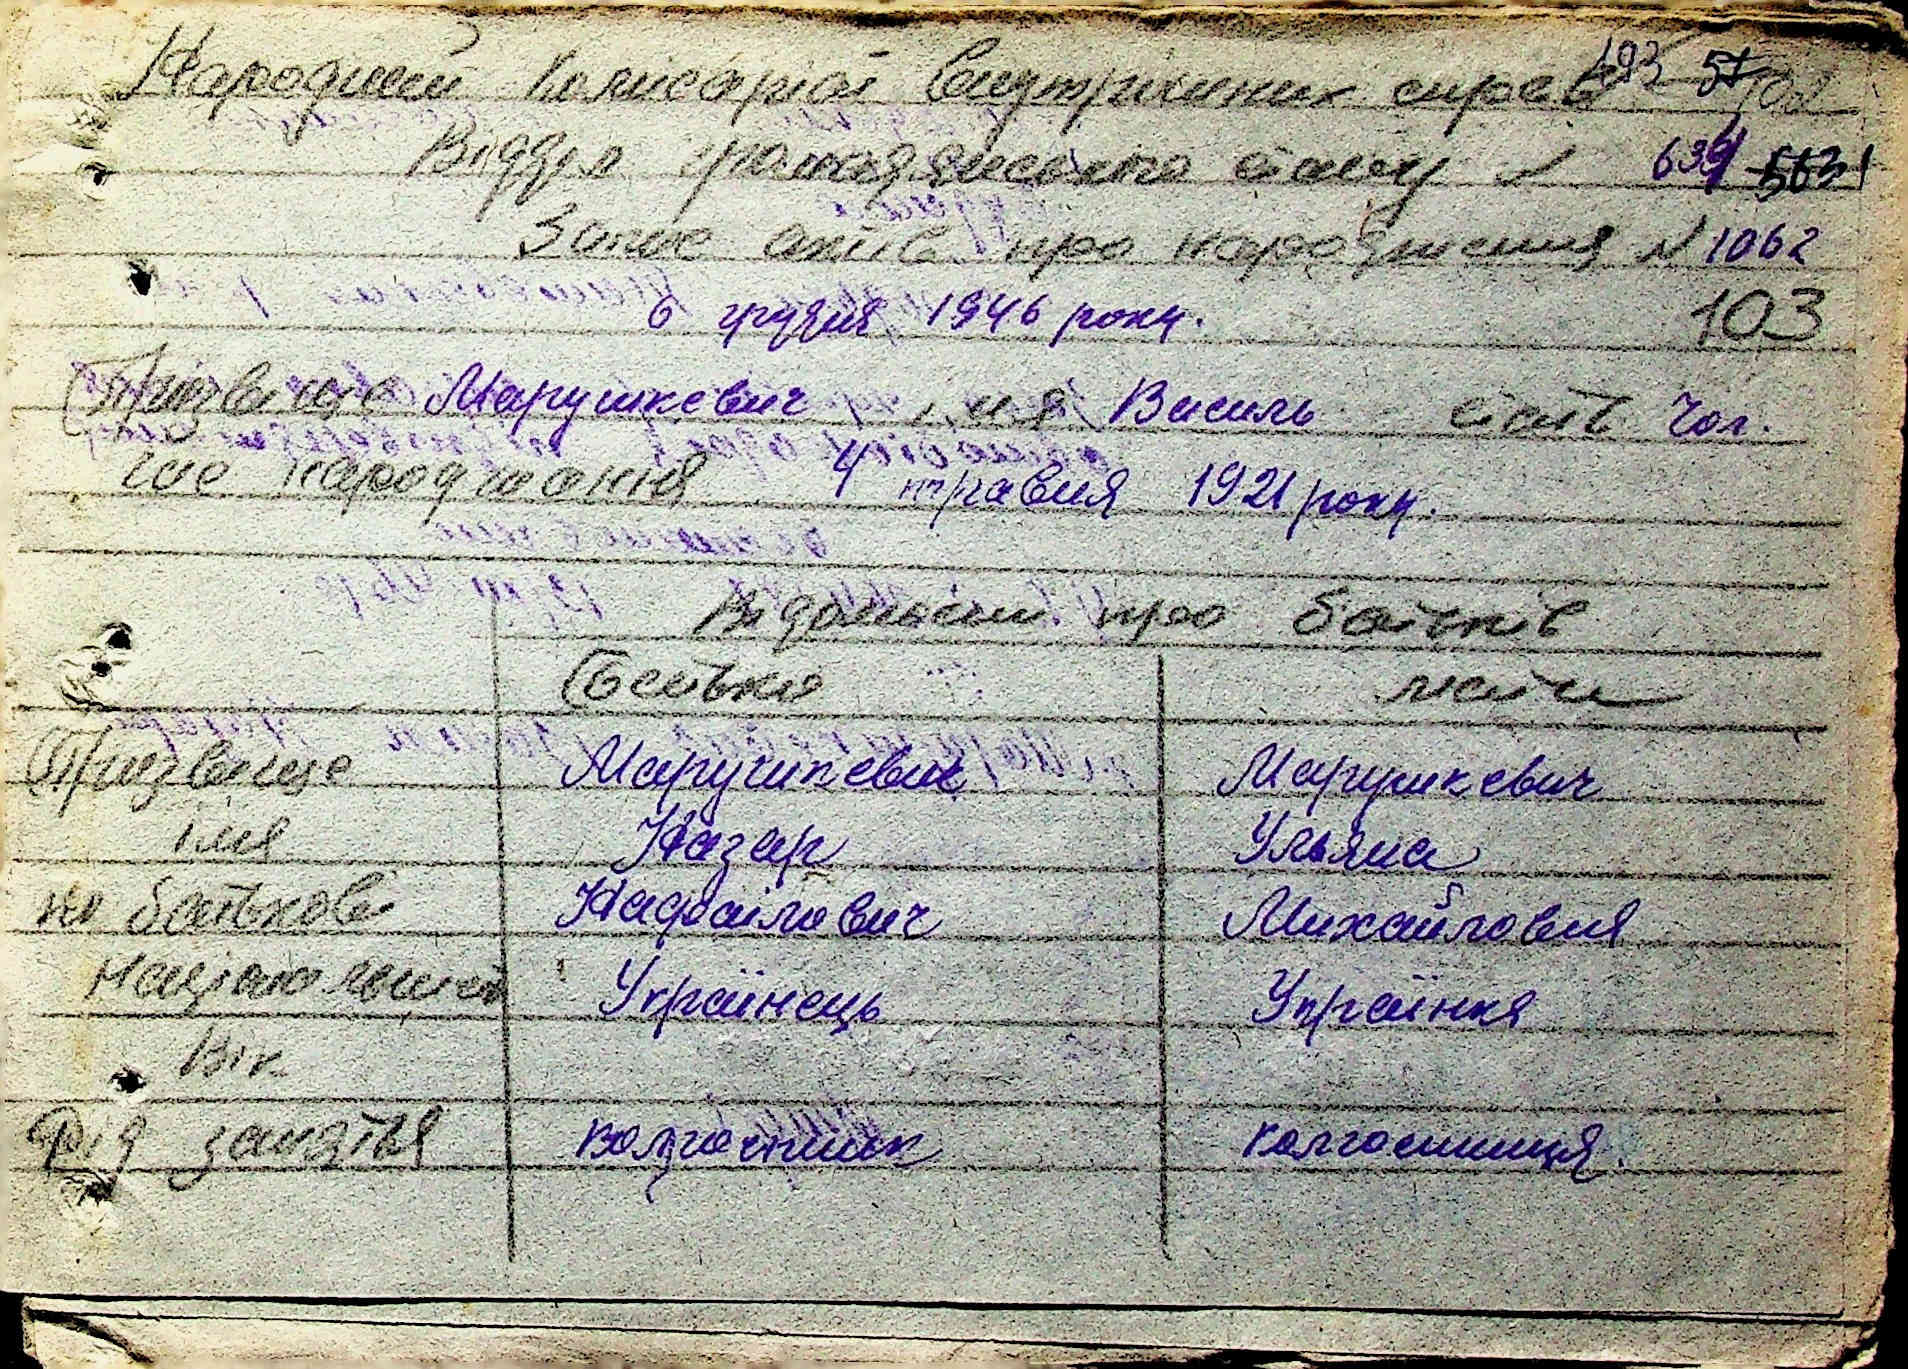 Народний Комісаріат внутрішних справ 193
Відділ громадянського стану № 639 5631
Запис актів про народження № 1062
6 грудня 1946 року. 103
Прізвище Марушкевич імя Василь стать чол.
час народження 4 травня 1921 року.
Відомости про батьків
батько мати
Прізвище Марушкевич Марушкевич
імя Назар Уляна
по батькові Нафаїлович Михайловня
національність Українець Українка
Вік
Рід заняття колгоспник колгоспниця.